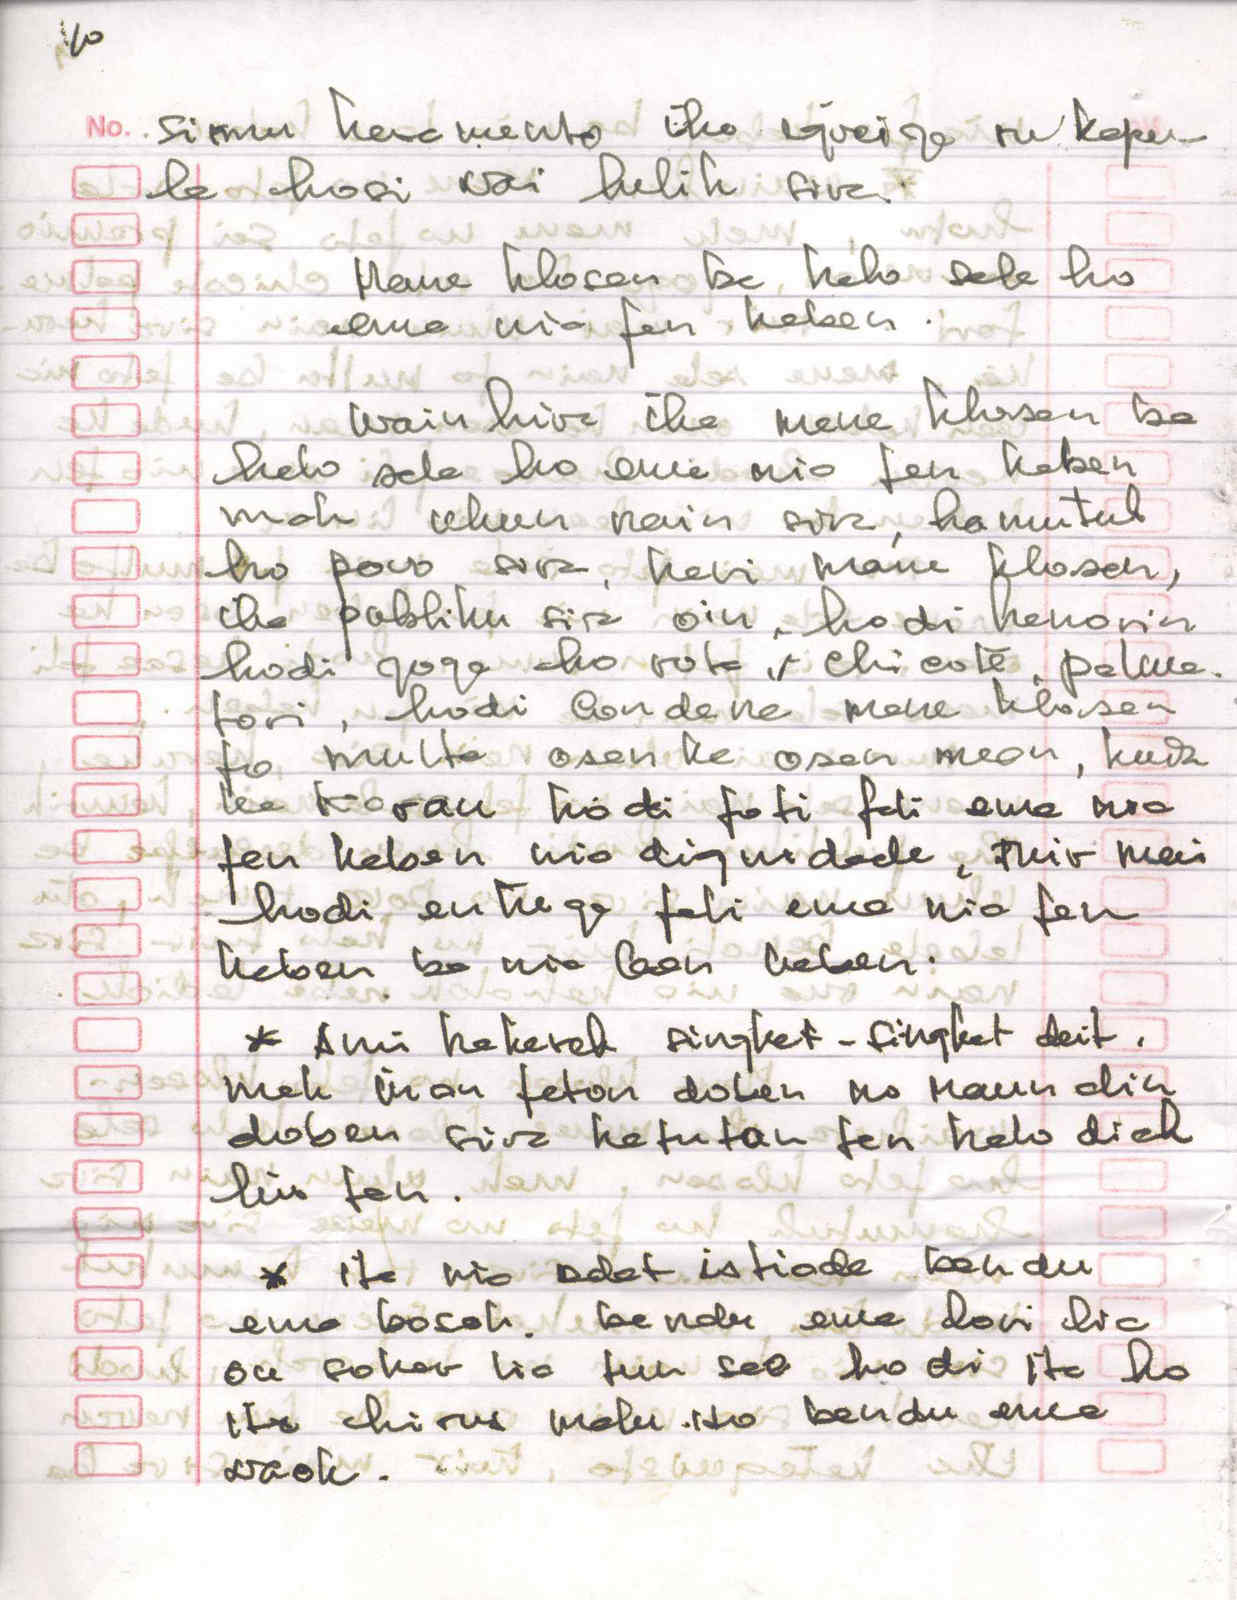 10
No. simu keramento iha igreiga ou kapu-
la hosi wai lulik sira.
Mane klosan be halo sala ho
ema nia fen kaben.
Wainhira iha mane klosan be
halo sala ho ema nia fen kaben
mak ukun nain sira, hamutuk
ho povo sira, keri mane klosan,
iha publiku sira oin, hodi hanorin
hodi goga ho rota, chicote, palma-
tori, hodi Condena mane klosan
fo multa osan ka osan mean, kuda
ka karau hodi foti fali ema nia
fen kaben nia dignidade, tuir mai
hodi entrega fali ema nia fen
kaben ba nia laen kaben.
* Ami hakerek singket-singket deit,
mak inan feton doben no maun alin
doben sira hatutan ten halo diak
liu tan.
* ita nia adat istiada bandu
ema bosok. bandu ema lori lia
ou sakar lia tun sae hodi ita ho
ita chirus malu. no bandu ema
naok.